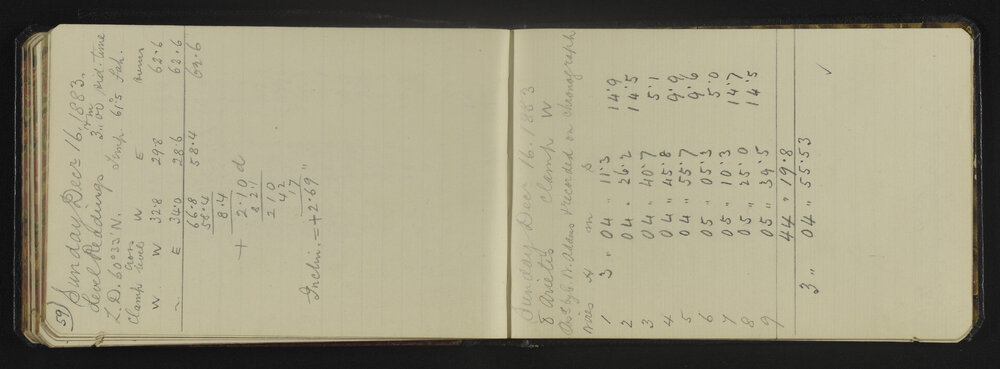 59
Sunday Decr 16, 1883.
Level Readings 3h 00m Sid. time
Z.D. 60°32' N. Temp 61°.5 Fah.
Clamp Cross levels W E sums
W W 32.8 29.8 62.6
" E 34.0 28.6 62.6
66.8 58.4 62.6
58.4
8.4
+ 2.10 d
8 2.1
2 10
4 2
1 7
Inclin. = + 2.69"
Sunday Decr 16, 1883
δ Arietis Clamp W
Obsd by C. W. Adams & recorded on chronograph
Wires H m s
1 3 " 04 " 11.3 14.9
2 04 " 26.2 14.5
3 04 " 40.7 5.1
4 04 " 45.8 9.9
5 04 " 55.7 9.6
6 05 " 05.3 5.0
7 05 " 10.3 14.7
8 05 " 25.0 14.5
9 05 " 39.5
44 " 19.8
3 " 04 " 55.53
✓